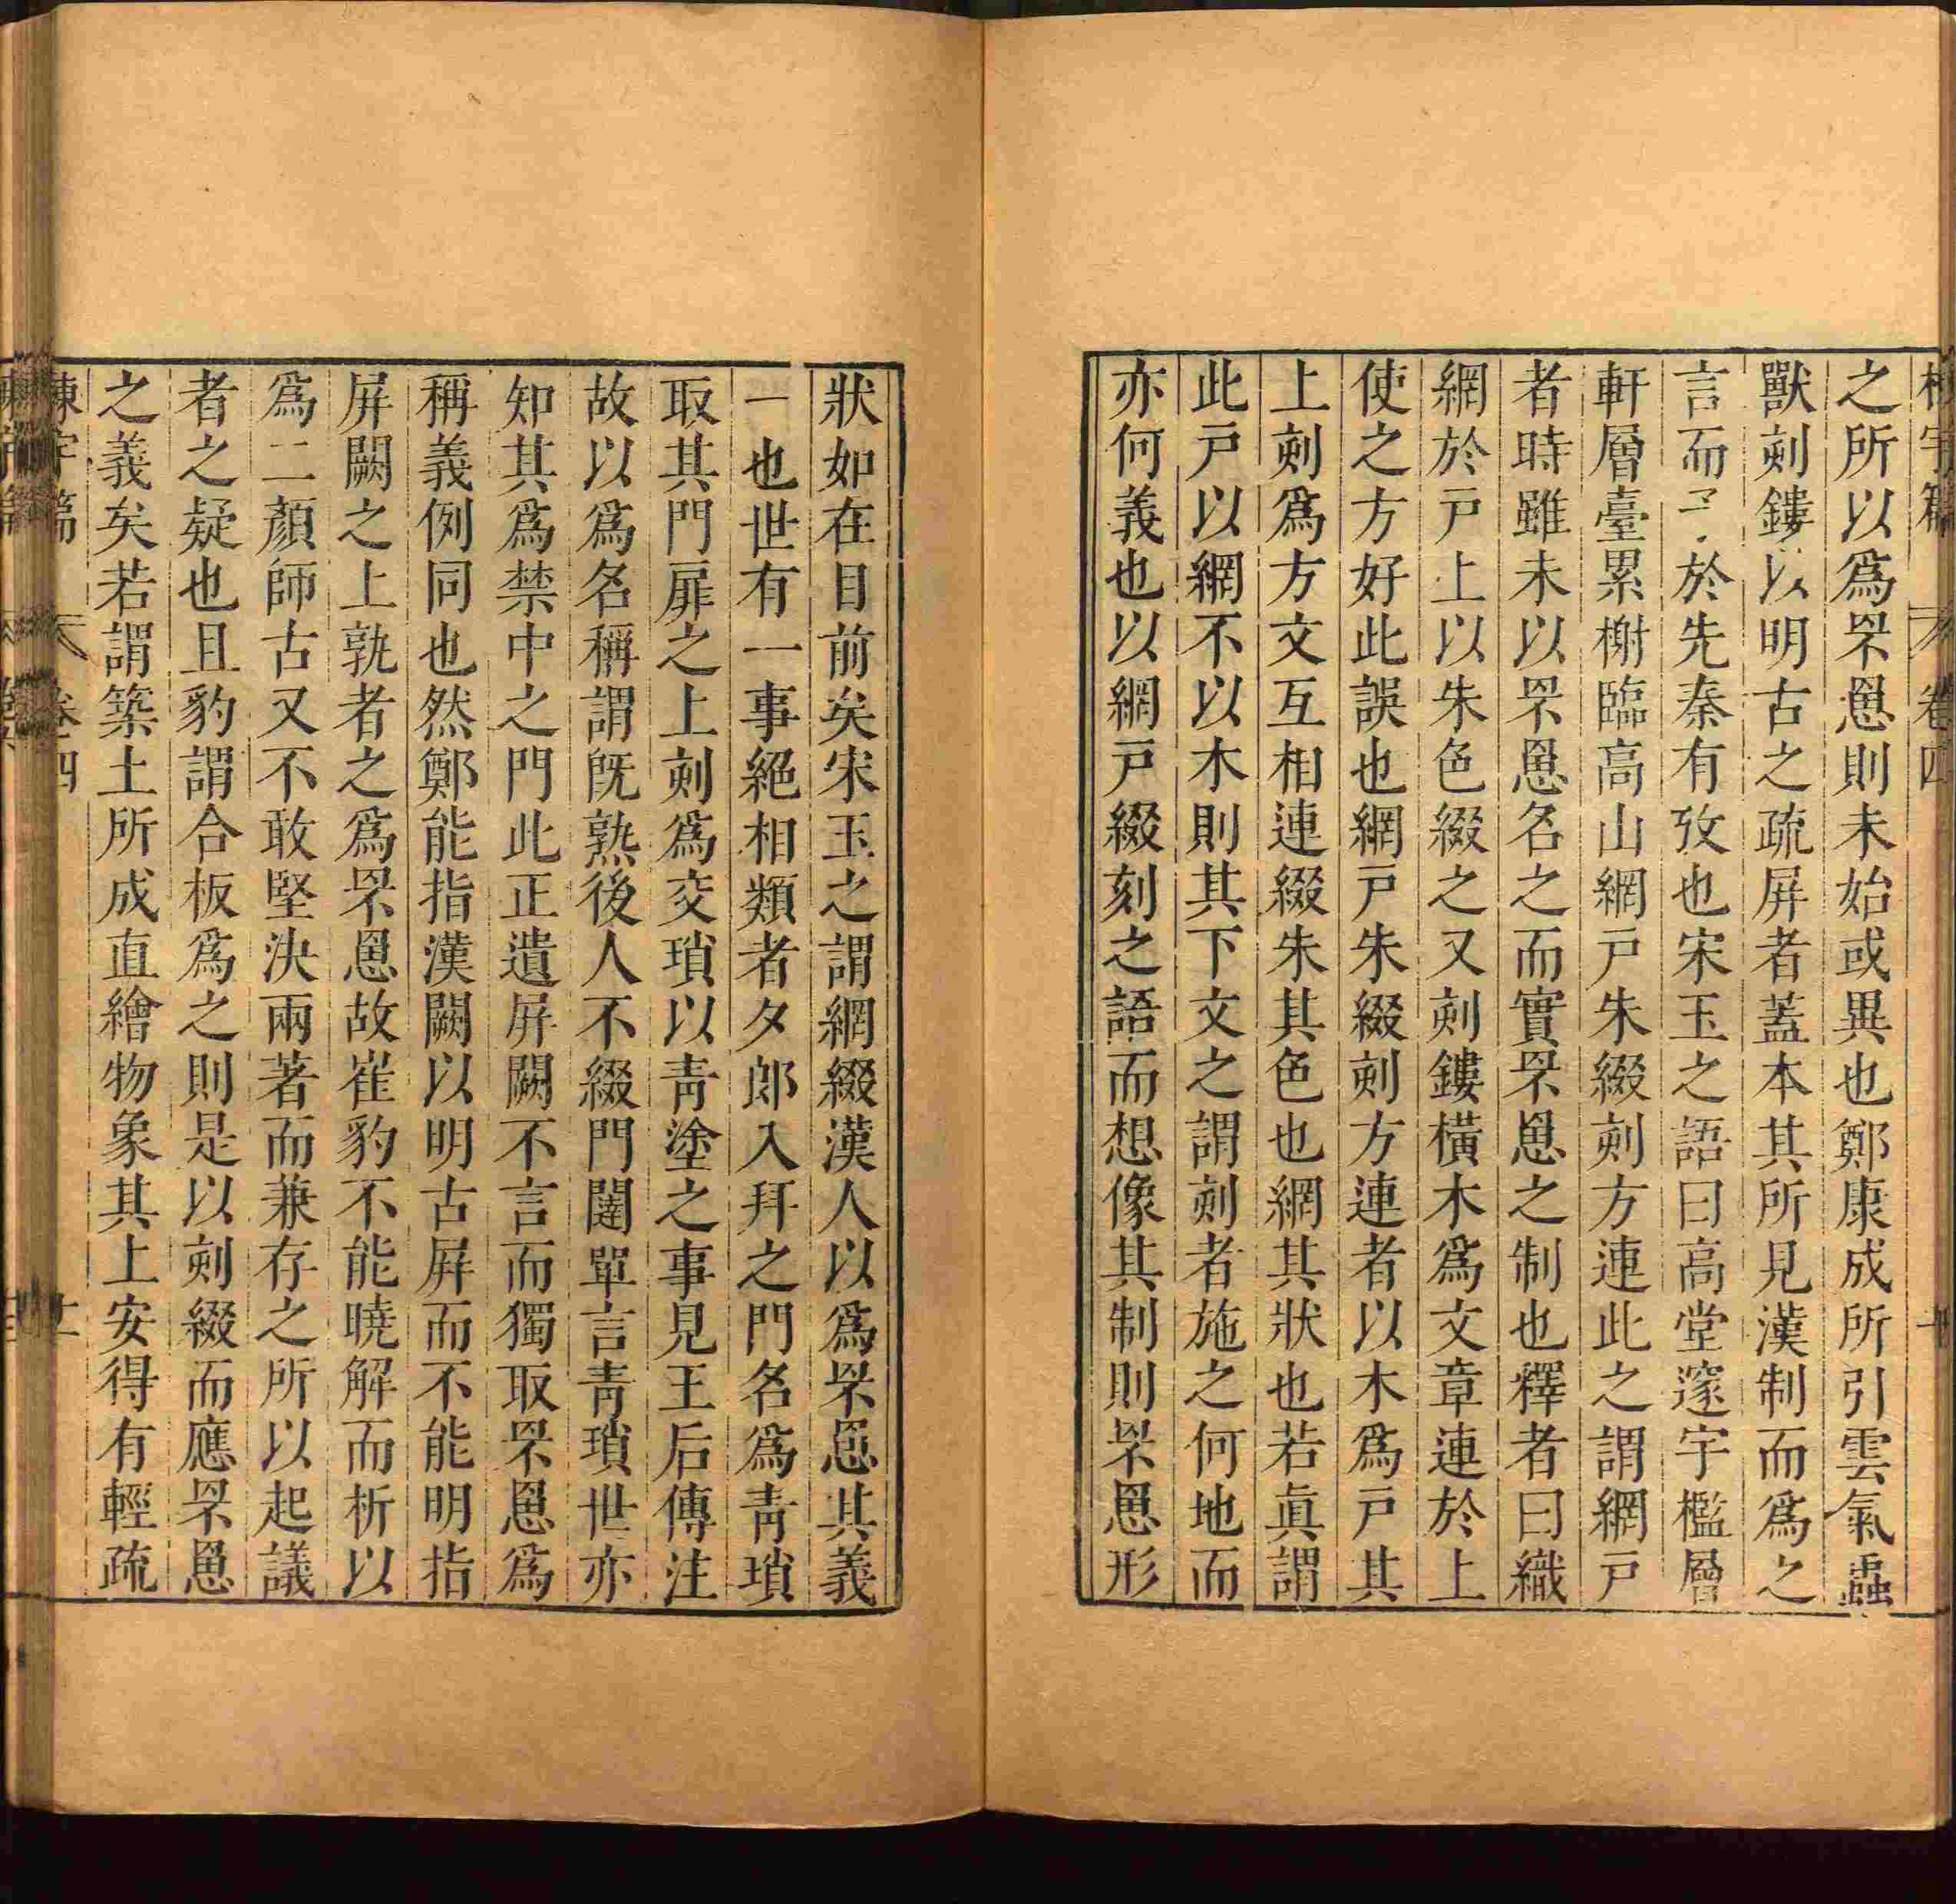 之所以爲罘罳則未始或異也鄭康成所引雲氣蟲
獸刻鏤以明古之疏屏者蓋本其所見漢制而爲之
言而予於先秦有攷也宋玉之語曰高堂邃宇檻層
軒層臺累榭臨高山網戸朱綴刻方連此之謂網戸
者時雖未以罘罳名之而實罘罳之制也釋者曰織
網於戸上以朱色綴之又刻鏤橫木爲文章連於上
使之方好此誤也網戸朱綴刻方連者以木爲戸其
上刻爲方文互相連綴朱其色也網其狀也若眞謂
此戸以網不以木則其下文之謂刻者施之何地而
亦何義也以網戸綴刻之語而想像其制則罘罳形
狀如在目前矣宋玉之謂網綴漢人以爲罘罳其義
一也世有一事絕相類者夕郎入拜之門名爲靑瑣
取其門扉之上刻爲交瑣以靑塗之事見王后傳注
故以爲名稱謂旣熟後人不綴門闥單言靑瑣世亦
知其爲禁中之門此正遺屛闕不言而獨取罘罳爲
稱義例同也然鄭能指漢闕以明古屛而不能明指
屛闕之上孰者之爲罘罳故崔豹不能曉解而析以
爲二顏師古又不敢堅決兩著而兼存之所以起議
者之疑也且豹謂合板爲之則是以刻綴而應罘罳
之義矣若謂築土所成直繪物象其上安得有輕疏
卷四